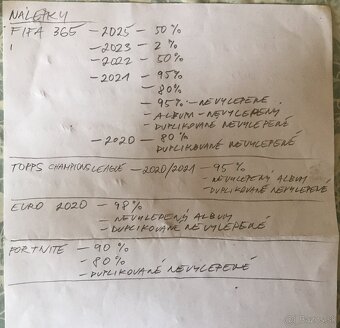 NÁLEPKY
FIFA 365 – 2025 – 50 %
– 2023 – 2 %
– 2022 – 50%
– 2021 – 95%
– 80%
– 95% – NEVYLEPENÉ
– ALBUM – NEVYLEPENÝ
– DUPLIKOVANÉ NEVYLEPENÉ
– 2020 – 80%
– DUPLIKOVANÉ NEVYLEPENÉ
TOPPS CHAMPIONS LEAGUE – 2020/2021 – 95%
– NEVYLEPENÝ ALBUM
– DUPLIKOVANÉ NEVYLEPENÉ
EURO 2020 – 98%
– NEVYLEPENÝ ALBUM
– DUPLIKOVANÉ NEVYLEPENÉ
FORTNITE – 90 %
– 80%
– DUPLIKOVANÉ NEVYLEPENÉ